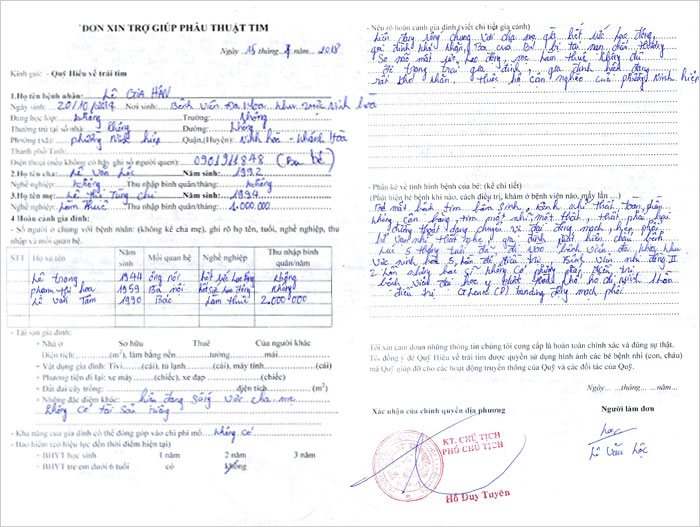 ĐƠN XIN TRỢ GIÚP PHẪU THUẬT TIM
Ngày 15 tháng 7 năm ... 2018
Kính gửi: - Quỹ Hiểu về trái tim
1.Họ tên bệnh nhân: LÊ GIA HÂN
Ngày sinh: 20/10/2017 Nơi sinh: Bệnh viện Đa khoa khu vực Ninh hòa
Đang học lớp: không Trường: không
Thường trú tại số nhà: không Đường: không
Phường (xã): phường Ninh hiệp Quận,(Huyện): Ninh hòa - Khánh Hòa
Thành phố/Tỉnh:
Điện thoại (nếu không có hãy ghi số người quen): 0901911848 (Ba bé)
2.Họ tên cha: Lê Văn Lộc Năm sinh: 1992
Nghề nghiệp: không Thu nhập bình quân/tháng: không
3.Họ tên mẹ: Lê Thị Tùng Chi Năm sinh: 1994
Nghề nghiệp: Làm thuê Thu nhập bình quân/tháng: 1.000.000
4 Hoàn cảnh gia đình:
- Số người ở chung với bệnh nhân: (không kể cha mẹ), ghi rõ họ tên, tuổi, nghề nghiệp, thu
nhập và mối quan hệ.
STT Họ và tên Năm sinh Mối quan hệ Nghề nghiệp Thu nhập bình quân/năm
Lê trọng 1948 ông nội hết sức Lao động không
phạm thị hoa 1959 Bà nội hết sức Lao động không
Lê văn Tâm 1990 Bác Làm thuê 2.000.000
- Tài sản gia đình:
• Nhà ở Sở hữu Thuê Của người khác
Diện tích:.........(m2), làm bằng nền..........tường........mái........
• Vật dụng gia đình: Tivi.....(cái), tủ lạnh.....(cái), máy tính.....(cái)
• Phương tiện đi lại: xe máy.....(chiếc), xe đạp.....(chiếc)
• Đất đai cây trồng:..........diện tích.......(m2)
• Những đặc điểm khác: hiện đang sống với cha mẹ
không có tài sản riêng
- Khả năng của gia đình có thể đóng góp vào chi phí mổ: không có
- Bảo hiểm: (có hiệu lực đến thời điểm hiện tại)
• BHYT học sinh 1 năm 2 năm 3 năm
• BHYT trẻ em dưới 6 tuổi có không
- Nêu rõ hoàn cảnh gia đình (viết chi tiết gia cảnh)
hiện đang sống chung với cha mẹ già hết sức lao động,
gia đình khó khăn, Ba của Bé bị tai nạn
mất sức lao động, mẹ làm thuê không đủ
rất khó khăn. thuộc hộ cận nghèo của phường Ninh hiệp
- Phần kể về tình hình bệnh của bé: (kể chi tiết)
(Phát hiện bệnh khi nào, cách điều trị, khám ở bệnh viện nào, mấy lần ...)
Bé mắc bệnh tim bẩm sinh, kênh nhĩ thất toàn phần
không cân bằng, tim một nhĩ một thất, thất phải
đường thoát động chuyển vị đại động mạch, hẹp phổi
hở van nhĩ thất nhẹ, gia đình phát hiện cháu bệnh
Lúc 5 tháng tuổi đã đi vào bệnh viện đa khoa khu
vực ninh hòa điều trị Bệnh viện nhi đồng II
2 lần nhưng bác sĩ không có phương pháp điều trị
bệnh viện đại học y dược
điều trị Glenn (P) banding động mạch phổi
Tôi xin cam đoan những thông tin chúng tôi cung cấp là hoàn toàn chính xác và đúng sự thật.
Tôi đồng ý để Quỹ Hiểu về trái tim được quyền sử dụng hình ảnh các bé bệnh nhi (con, cháu)
mà Quỹ giúp đỡ cho các hoạt động truyền thông của Quỹ và các đối tác của Quỹ.
Ngày... tháng ...năm...
Xác nhận của chính quyền địa phương Người làm đơn
KT. CHỦ TỊCH
PHÓ CHỦ TỊCH
Lộc
Lê Văn Lộc
Hồ Duy Tuyên